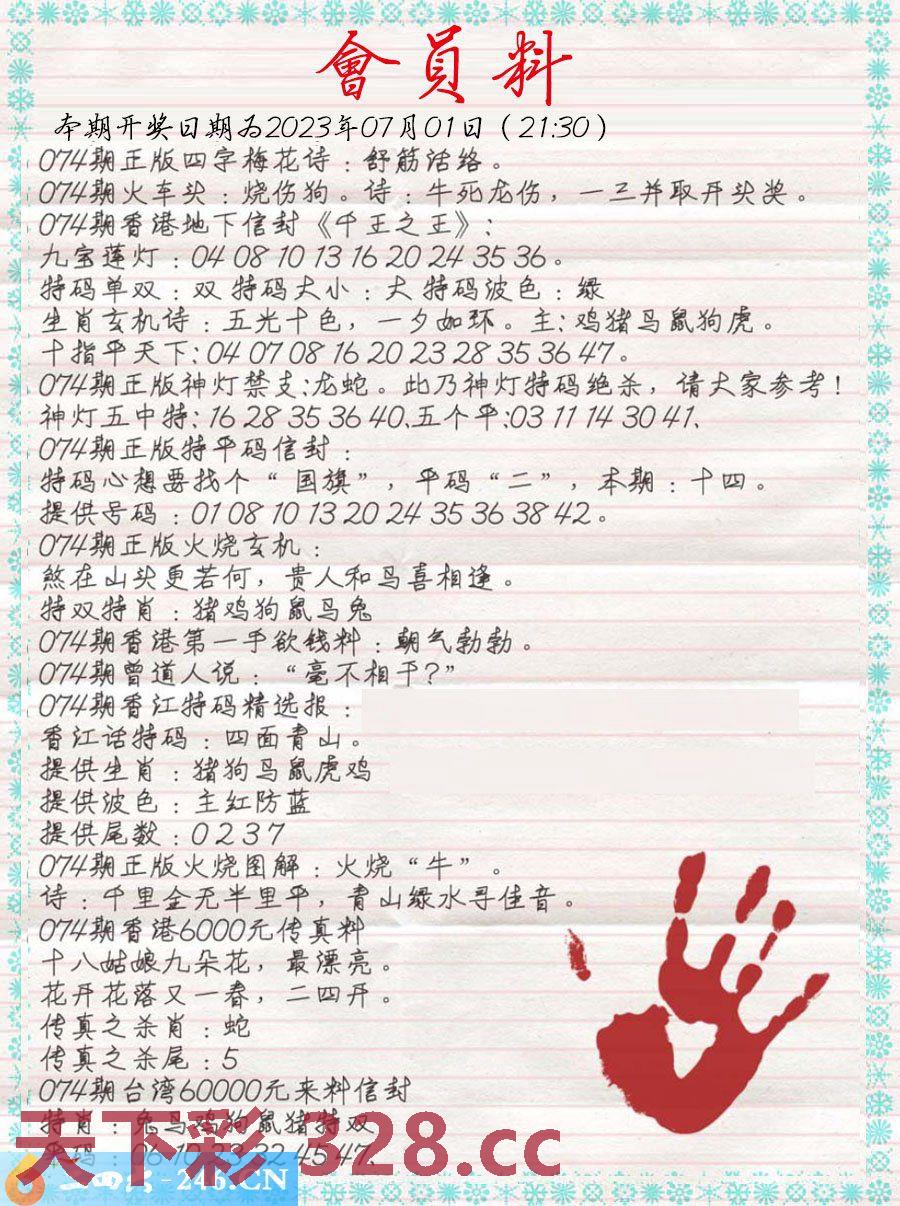 會員料
本期开奖日期为2023年07月01日（21:30）
074期正版四字梅花诗：舒筋活络。
074期火车头：烧伤狗。诗：牛死龙伤，一三并取开头奖。
074期香港地下信封《千王之王》:
九宝莲灯：04 08 10 13 16 20 24 35 36。
特码单双：双 特码大小：大 特码波色：绿
生肖玄机诗：五光十色，一夕如环。主:鸡猪马鼠狗虎。
十指平天下:04 07 08 16 20 23 28 35 36 47。
074期正版神灯禁支:龙蛇。此乃神灯特码绝杀，请大家参考！
神灯五中特:16 28 35 36 40.五个平:03 11 14 30 41.
074期正版特平码信封：
特码心想要找个“国旗”，平码“二”，本期：十四。
提供号码：01 08 10 13 20 24 35 36 38 42。
074期正版火烧玄机：
煞在山头更若何，贵人和马喜相逢。
特双特肖：猪鸡狗鼠马兔
074期香港第一手欲钱料：朝气勃勃。
074期曾道人说：“毫不相于?”
074期香江特码精选报：
香江话特码：四面青山。
提供生肖：猪狗马鼠虎鸡
提供波色：主红防蓝
提供尾数：0 2 3 7
074期正版火烧图解：火烧“牛”。
诗：千里金无半里平，青山绿水寻佳音。
074期香港6000元传真料
十八姑娘九朵花，最漂亮。
花开花落又一春，二四开。
传真之杀肖：蛇
传真之杀尾：5
074期台湾60000元来料信封
特肖：兔马鸡狗鼠猪特双
平码：06 10 23 32 45 47.
天下彩-328.cc
二四六-246.CN